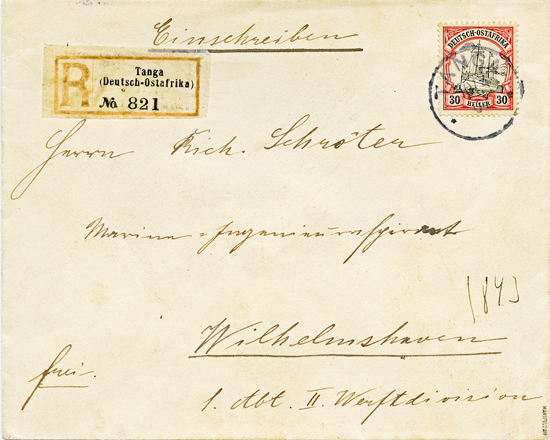 Einschreiben
DEUTSCH-OSTAFRIKA
30 HELLER 30
R
Tanga
(Deutsch-Ostafrika)
No 821
TANGA
Herrn Rich. Schröter
Marine-Ingenieuraspirant
(843
Wilhelmshaven
frei.
1. Abt. II. Werftdivision